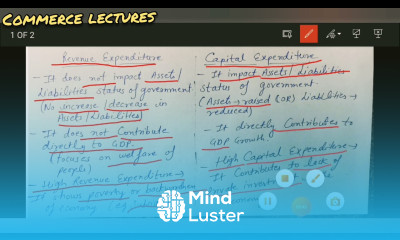 COMMERCE LECTURES
1 OF 2
Revenue Expenditure
- It does not impact Assets/
Liabilities status of government
(No increase/decrease in
Assets/Liabilities)
- It does not Contribute
directly to GDP.
(focuses on welfare of
people)
- High Revenue Expenditure →
It shows poverty or
Capital Expenditure
- It impact Assets/Liabilities
status of government
(Assets → raised (OR) Liabilities →
reduced)
- It directly Contributes to
GDP Growth.
- High Capital Expenditure →
It Contributes to lack of
Mind
Luster